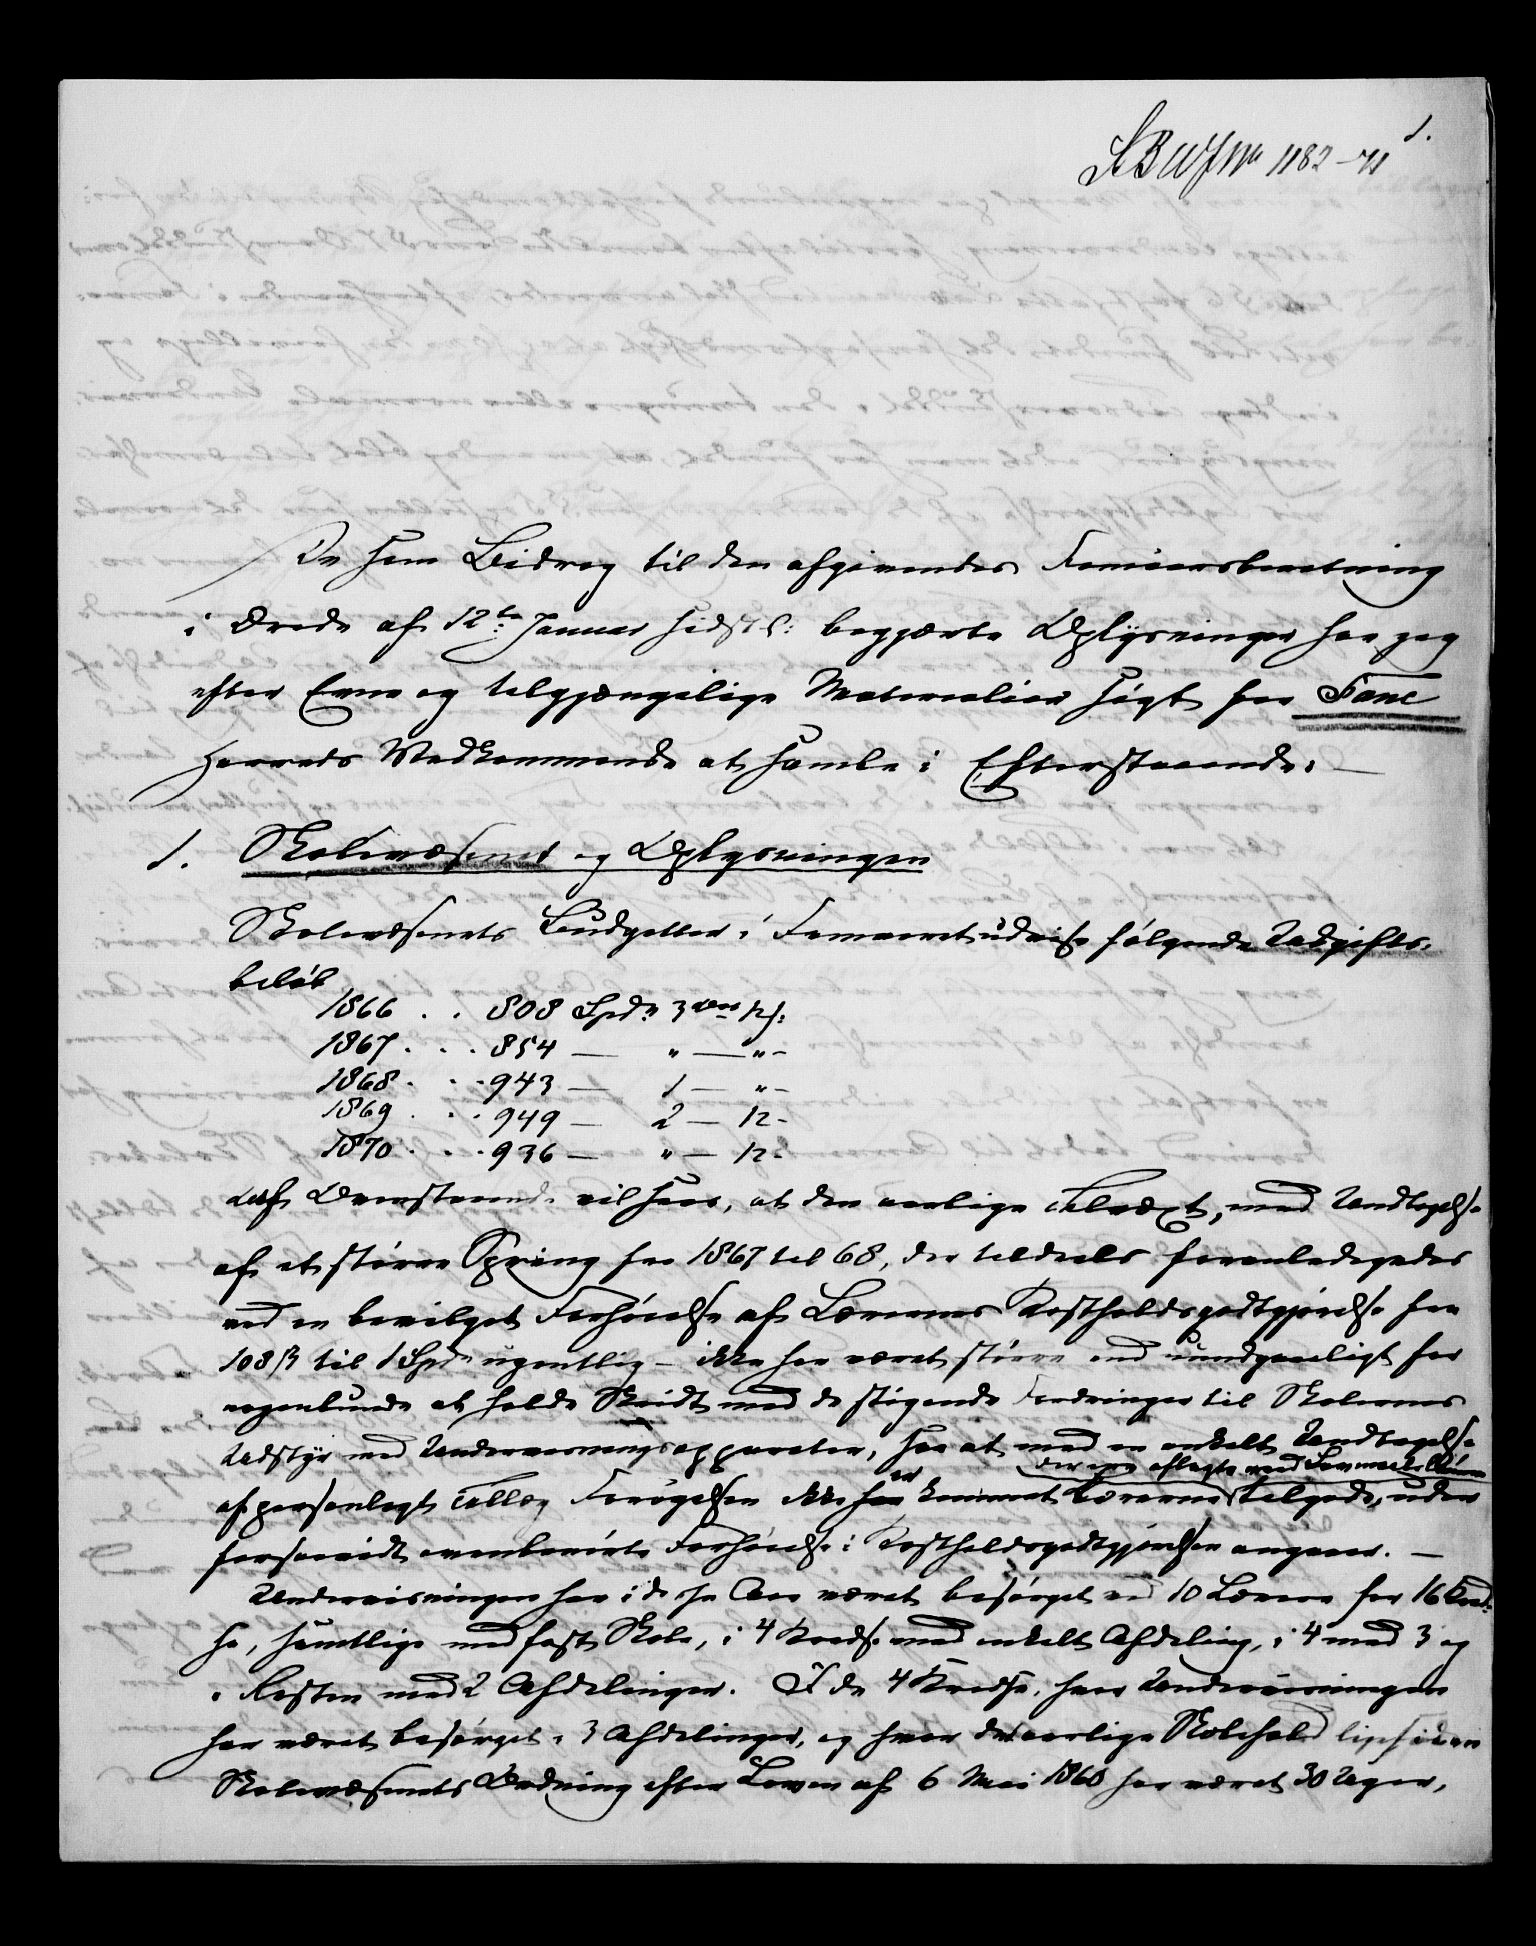 1.
1182-71
De som Bidrag til den afgivendes Femaarsberetning
i Brede af 12te Januar sidstl: begjærte Oplysninger har jeg
efter Evne og tilgjængelige Materialier søgt for Fane
Herreds Vedkommende at samle i Efterstaaende: —
1. Skolevæsenet og Oplysningen
Skolevæsenets Budgetter i Femaaret udvise følgende Udgifts-
beløb
1866 . . 808 Spd. 3 ort 12 s:
1867 . . . 854 — „ — „ -
1868 . . . 943 — 1 — „ -
1869 . . . 949 — 2 — 12 -
1870 . . . 936 — „ — 12 -
Af Ovenstaaende vil sees, at den aarlige Tilvæxt, med Undtagelse
af et større Spring fra 1867 til 68, der tildeels foranledigedes
ved en bevilget Forhøielse af Lærernes Kostholdsgodtgjørelse fra
108 ß til 1 Spd. ugentlig — ikke har været større end uundgaaeligt for
nogenlunde at holde Skridt med de stigende Fordringer til Skolernes
Udstyr med Undervisningsapparater, saa at med en enkelt Undtagelse
af personligt Tillæg Forøgelsen ikke er kommet Lærerne tilgode, uden
forsaavidt ovenberørte Forhøielse i Kostholdsgodtgjørelsen angaaer. —
Undervisningen har i disse Aar været besørget ved 10 Lærere for 16 Kred-
se, samtlige med fast Skole, i 4 Kredse med enkelt Afdeling, i 4 med 3 og
i Resten med 2 Afdelinger. I de 4 Kredse, hvor Undervisningen
har været besørget i 3 Afdelinger, og hvor det aarlige Skolehold ligesiden
Skolevæsenets Ordning efter Loven af 6 Mai 1860 har været 30 Uger,